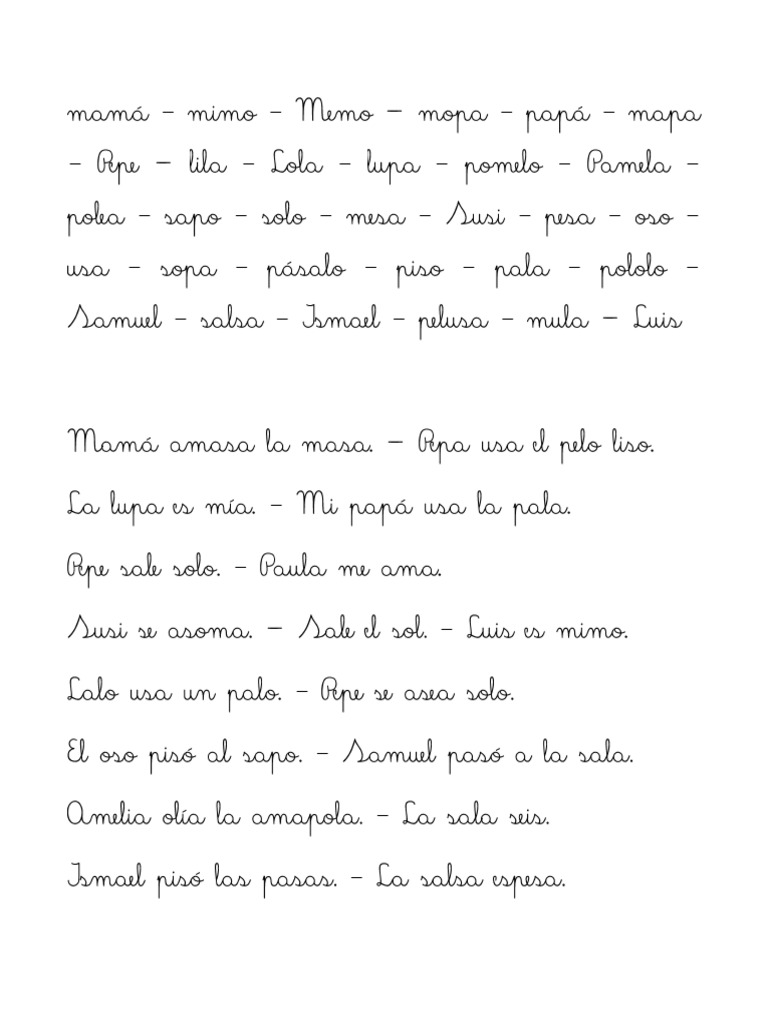 mamá - mimo - Memo – mopa - papá - mapa
- Pepe – lila - Lola - lupa - pomelo - Pamela -
polea - sapo - solo - mesa - Susi - pesa - oso -
usa - sopa - pásalo - piso - pala - pololo -
Samuel - salsa - Ismael - pelusa - mula – Luis
Mamá amasa la masa. – Pepa usa el pelo liso.
La lupa es mía. - Mi papá usa la pala.
Pepe sale solo. - Paula me ama.
Susi se asoma. – Sale el sol. - Luis es mimo.
Lalo usa un palo. - Pepe se asea solo.
El oso pisó al sapo. - Samuel pasó a la sala.
Amelia olía la amapola. - La sala seis.
Ismael pisó las pasas. - La salsa espesa.